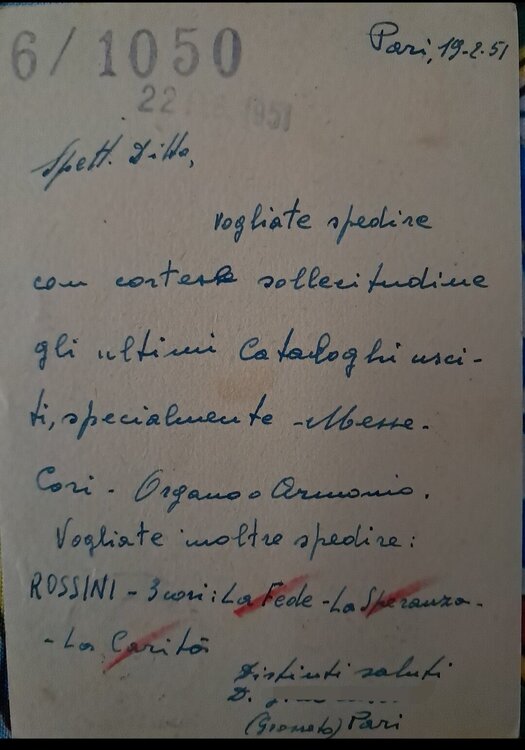 6/1050
Pari, 19-2-51
22 1951
Spett. Ditta,
Vogliate spedire
con cortese sollecitudine
gli ultimi Cataloghi usci-
ti, specialmente - Messe -
Cori - Organo o Armonio.
Vogliate inoltre spedire:
ROSSINI - 3 cori: La Fede - La Speranza -
- La Carità
Distinti saluti
D.
(Grosseto) Pari